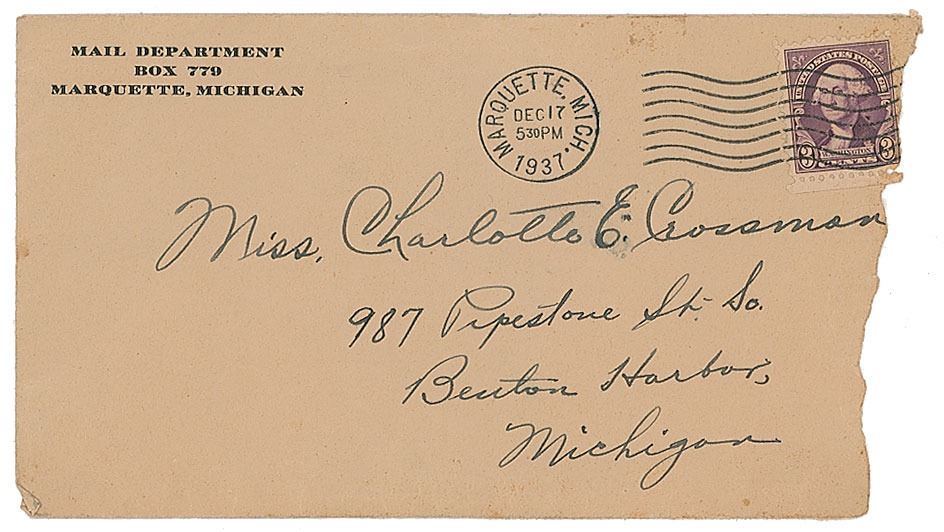 MAIL DEPARTMENT
BOX 779
MARQUETTE, MICHIGAN
MARQUETTE, MICH.
DEC 17
5 30 PM
1937
UNITED STATES POSTAGE
WASHINGTON
3 CENTS 3
Miss, Charlotte E. Crossman
987 Pipestone St. So.
Benton Harbor,
Michigan